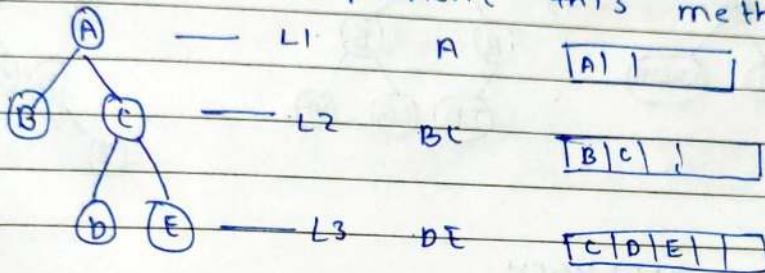 this meth
A — L1 A |A| |
B C — L2 BC |B|C| |
D E — L3 DE |C|D|E| |